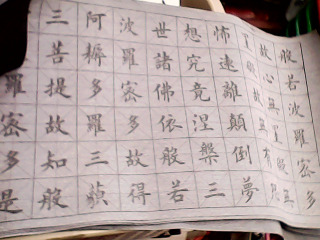 般若波羅蜜多
故心無罣礙無
罣故無有恐
怖遠離顛倒夢
想究竟涅槃三
世諸佛依般若
波羅蜜多故得
阿耨多羅三藐
三菩提故知般
羅蜜多是